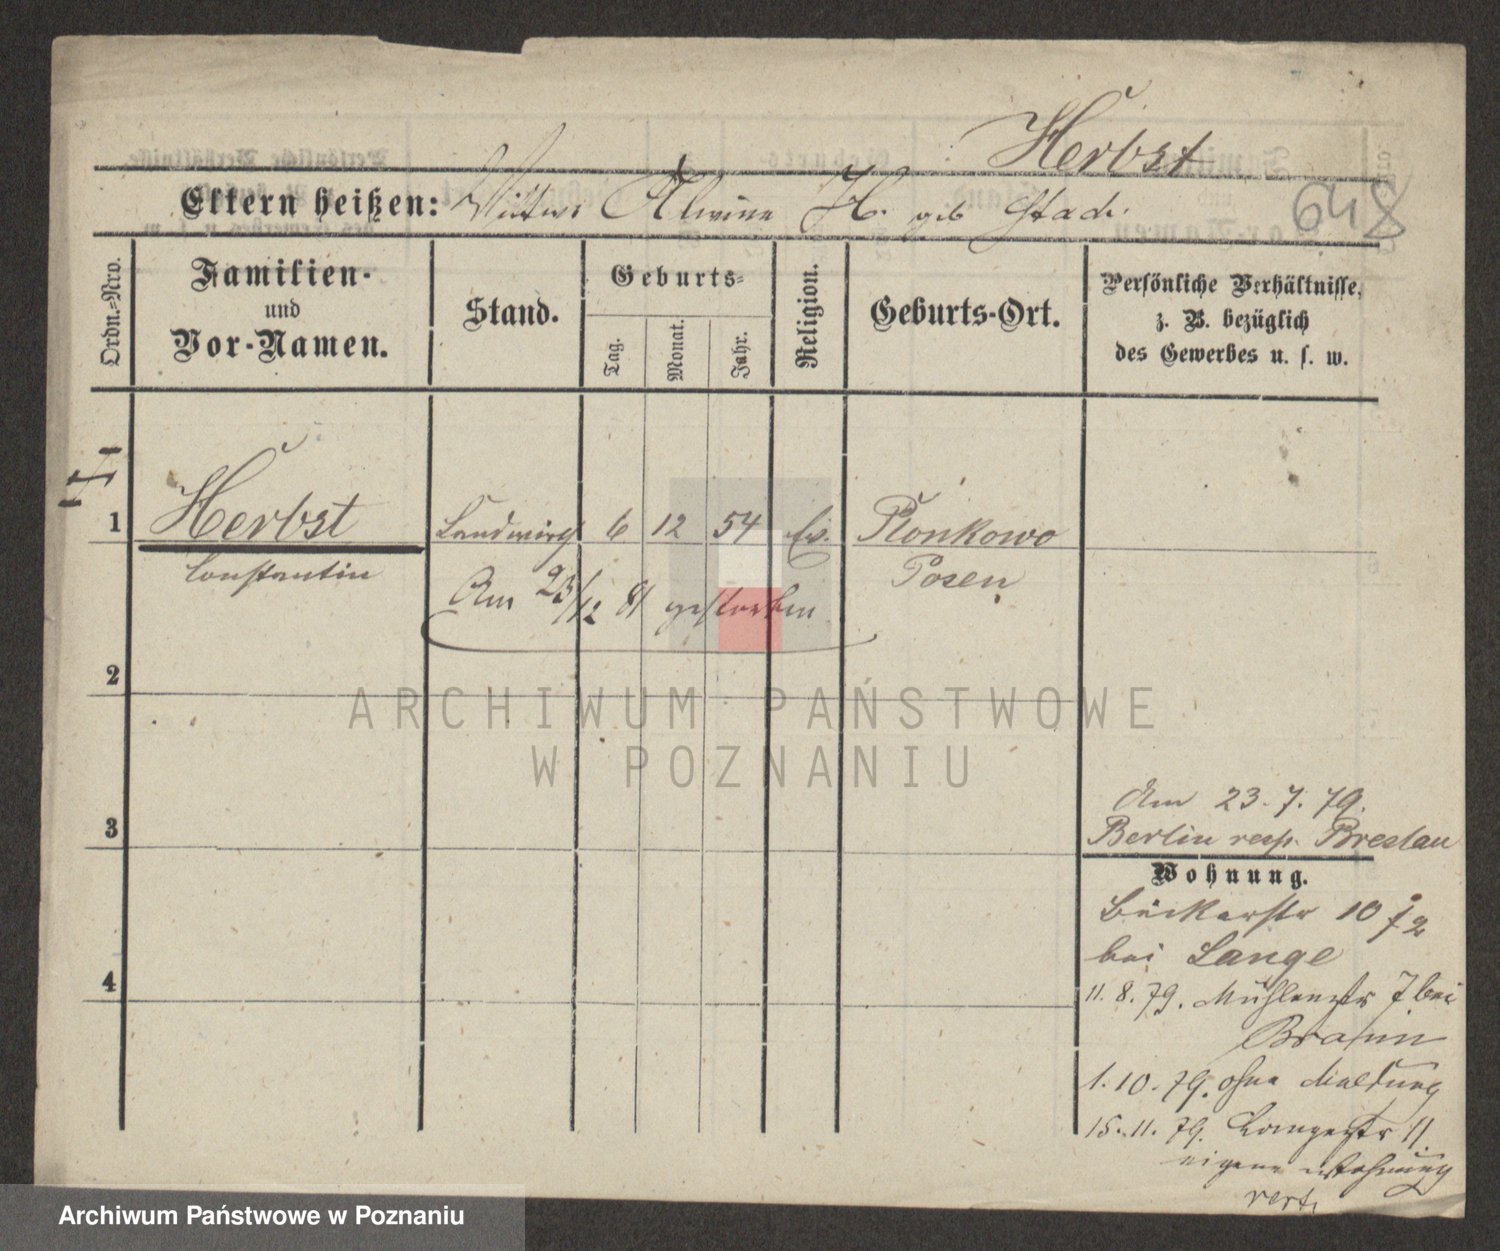 Herbst
648
Eltern heißen: Wittwe Alwine H. geb Stach.
Ordn.-Nro.
Familien-
und
Vor-Namen.
Stand.
Geburts-
Tag.
Monat.
Jahr.
Religion.
Geburts-Ort.
Persönliche Verhältnisse,
z. B. bezüglich
des Gewerbes u. s. w.
1 Herbst Landwirth 6 12 54 Ev. Plonkowo
Constantin Posen
Am 23/12 81 gestorben
2
ARCHIWUM PAŃSTWOWE
W POZNANIU
3
Am 23. 7. 79.
Berlin resp. Breslau
Wohnung.
Bäckerstr 10
bei Lange
4
11. 8. 79. Mühlenstr 7 bei
Braun
1. 10. 79. ohne Meldung
15. 11. 79. Langestr 11.
eigene Wohnung
vert.
Archiwum Państwowe w Poznaniu